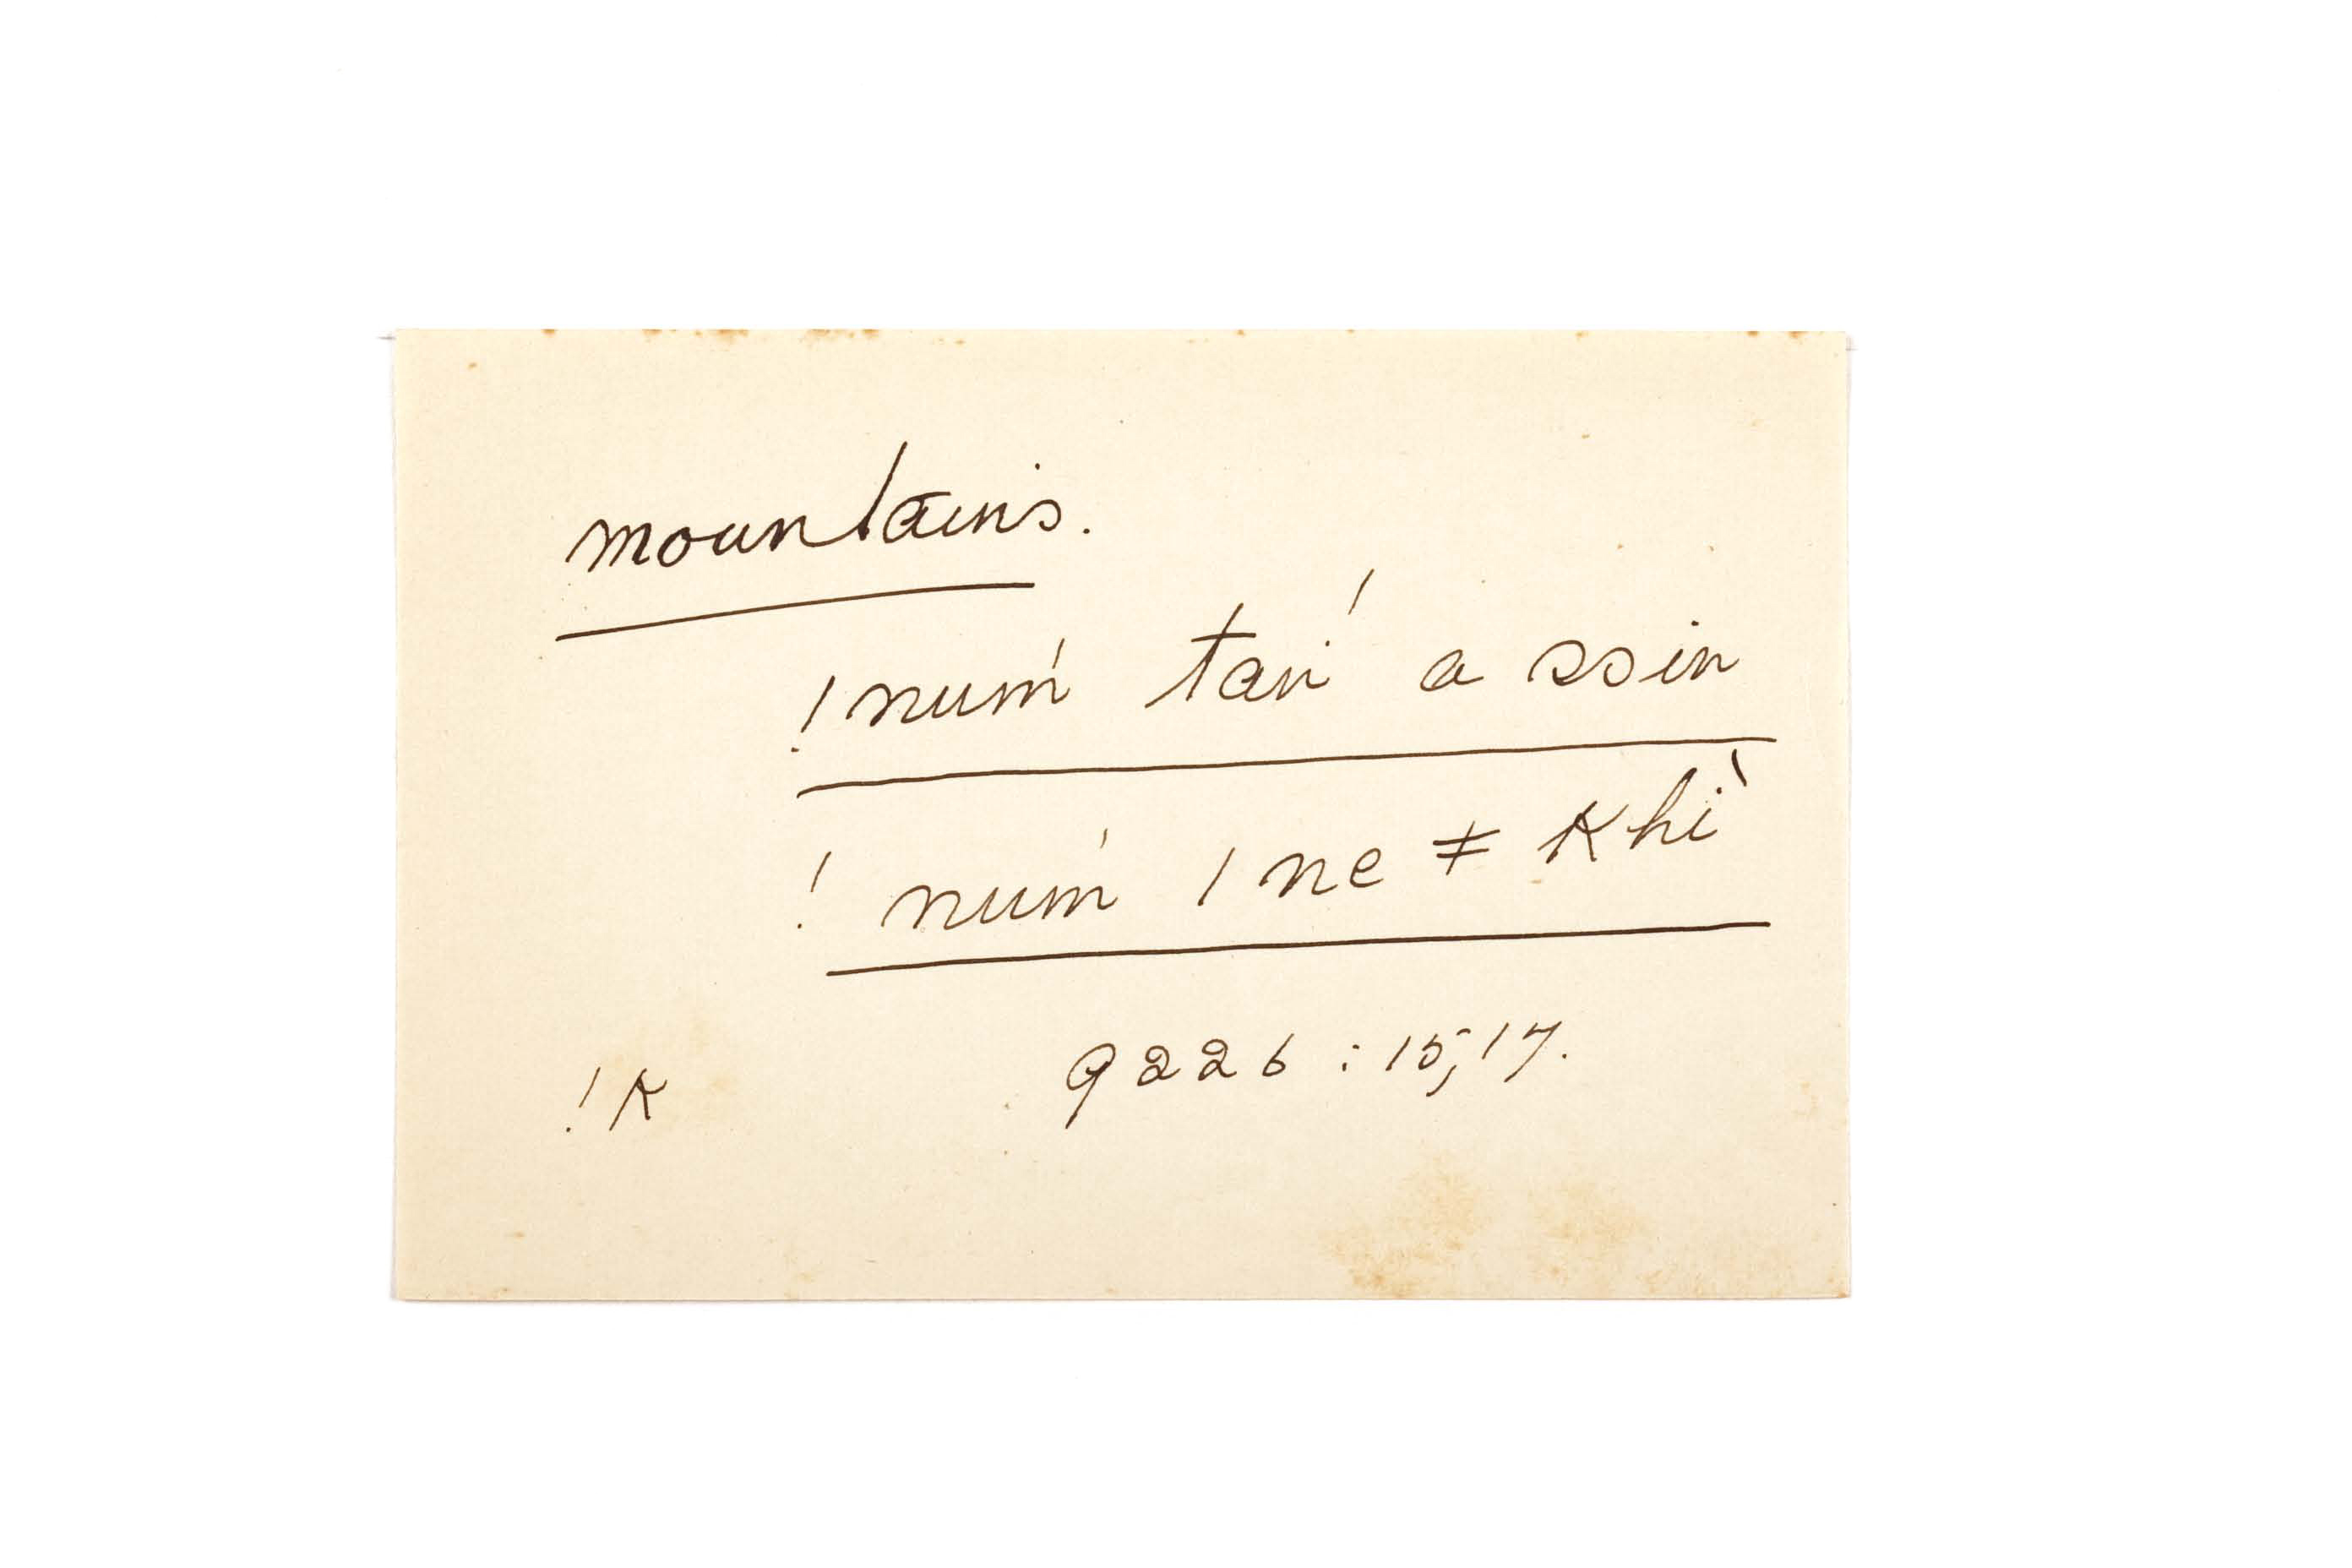 mountains.
!num̍ tan̍ a ssin
! num̍ | ne ǂ khì
!k 9226 : 15, 17.